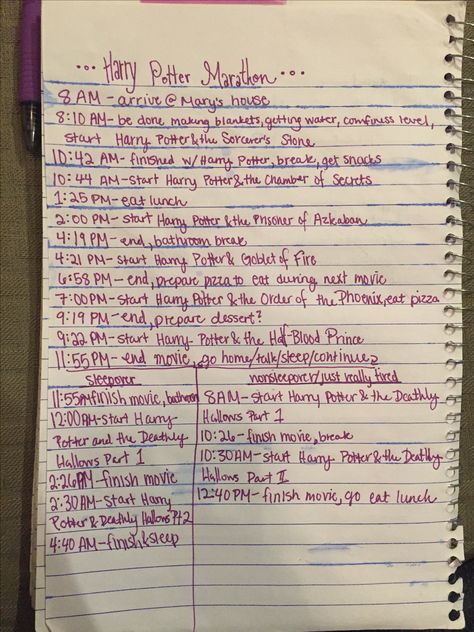 ...Harry Potter Marathon...
8 AM - arrive @ Mary's house
8:10 AM - be done making blankets, getting water, comfiness level,
start Harry Potter & the Sorcerer's Stone
10:42 AM - finished w/ Harry Potter, break, get snacks
10:44 AM - start Harry Potter & the Chamber of Secrets
1:25 PM - eat lunch
2:00 PM - start Harry Potter & the Prisoner of Azkaban
4:19 PM - end, bathroom break
4:21 PM - start Harry Potter & Goblet of Fire
6:58 PM - end, prepare pizza to eat during next movie
7:00 PM - start Harry Potter & the Order of the Phoenix, eat pizza
9:19 PM - end, prepare dessert?
9:22 PM - start Harry Potter & the Half Blood Prince
11:55 PM - end movie, go home/talk/sleep/continue?
sleepover
11:55 AM finish movie, bathroom
12:00 AM - start Harry
Potter and the Deathly
Hallows Part 1
2:26 AM - finish movie
2:30 AM - start Harry
Potter & Deathly Hallows Pt 2
4:40 AM - finish & sleep
nonsleepover/just really tired
8 AM - start Harry Potter & the Deathly
Hallows Part 1
10:26 - finish movie, break
10:30 AM - start Harry Potter & the Deathly
Hallows Part II
12:40 PM - finish movie, go eat lunch